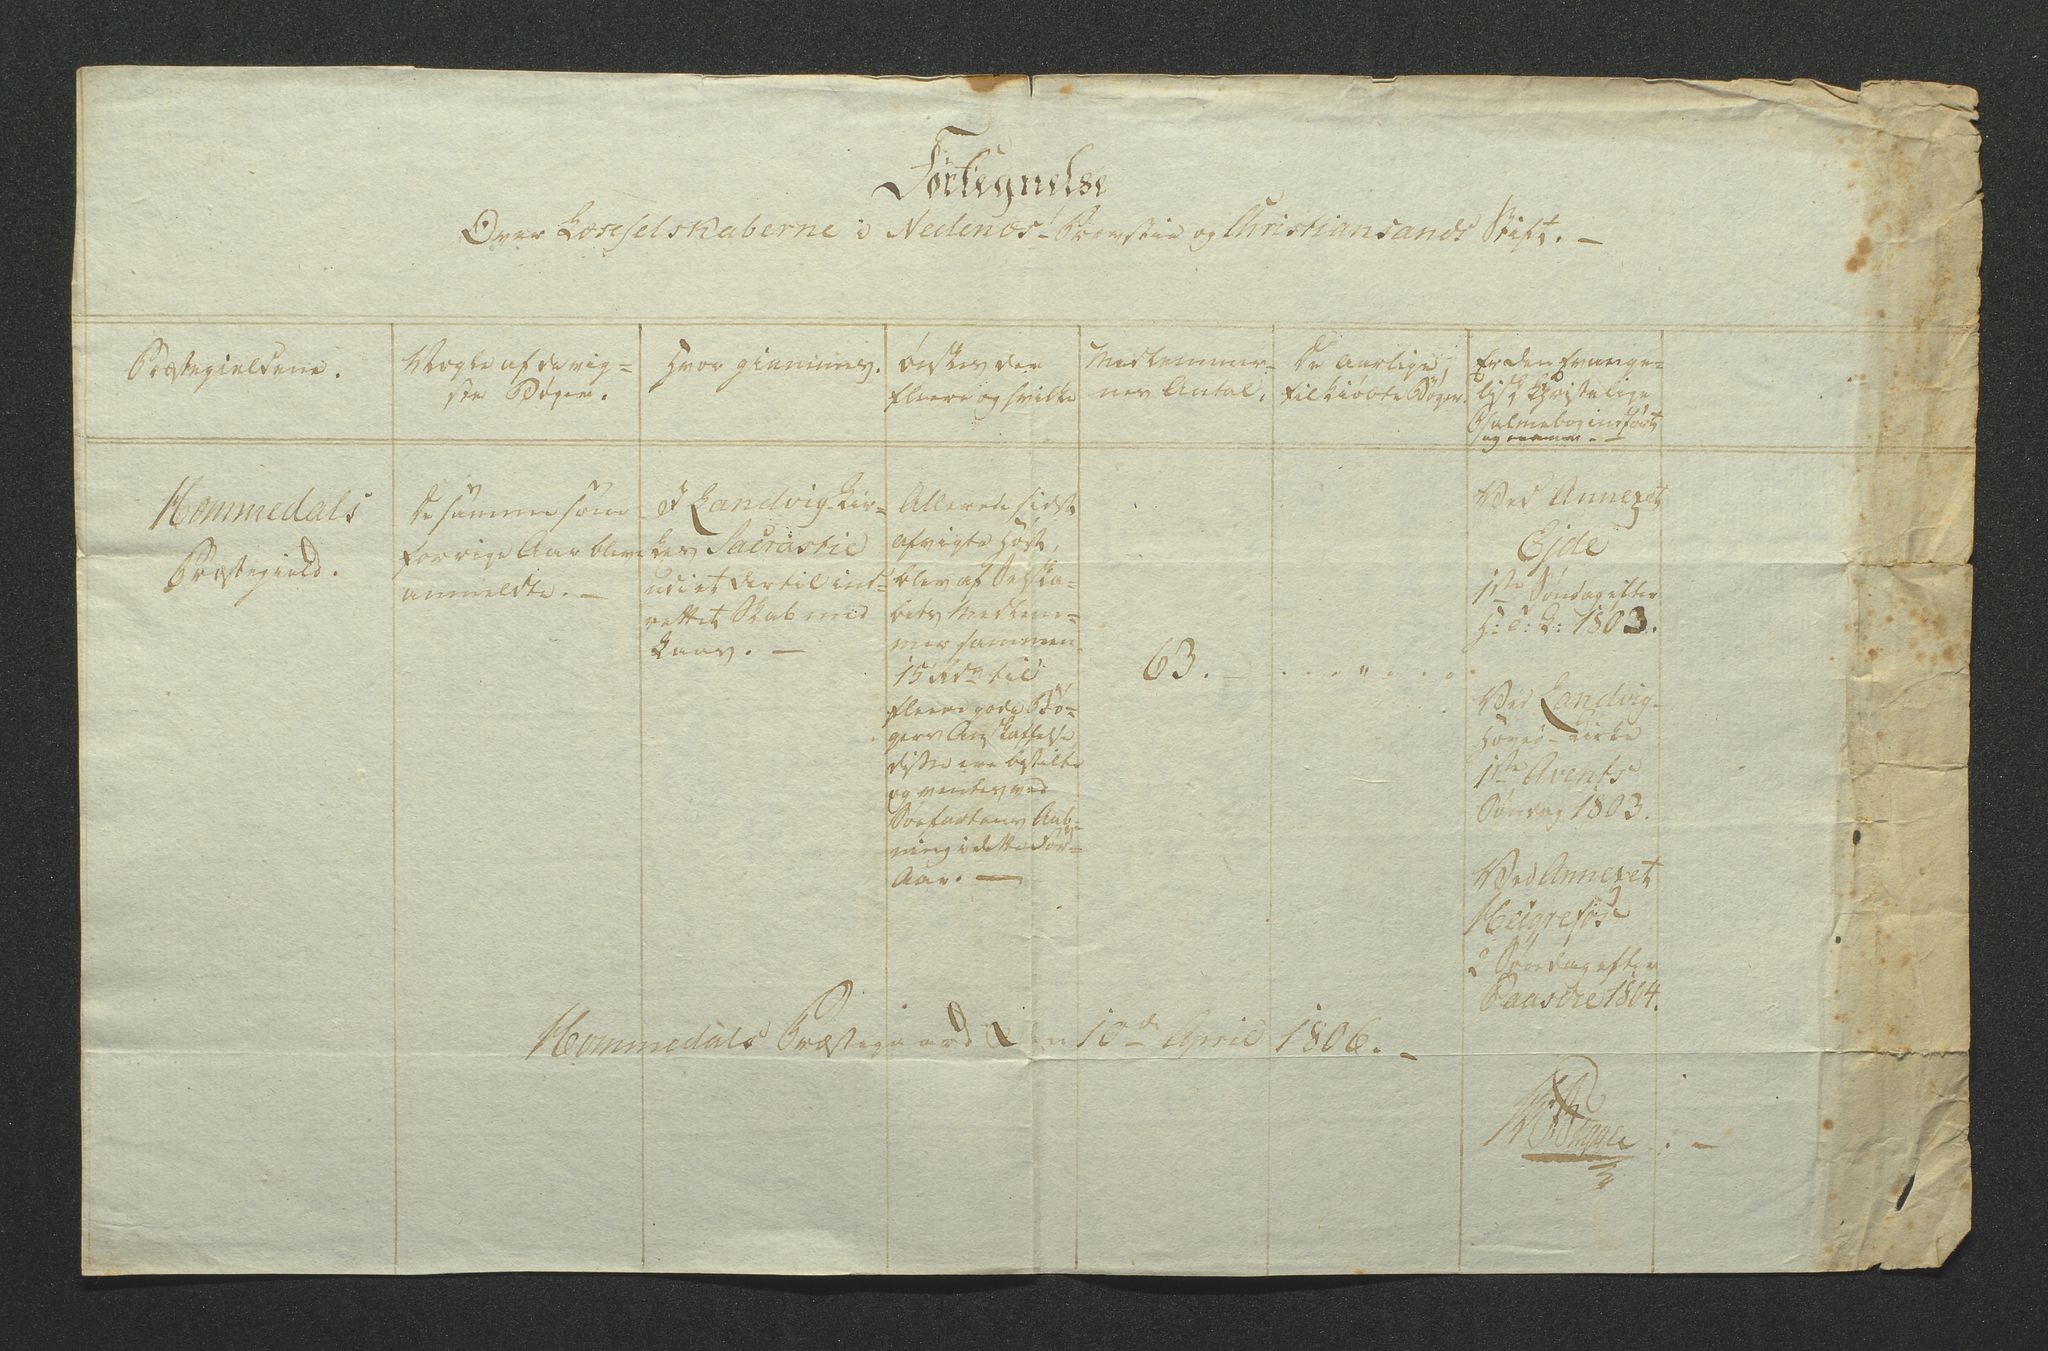 Fortegnelse
Over Læseselskaberne i Nedenæs-Provstie og Christiansands Stift. —
Præstegieldene.
Nogle af de vig=
ste Bøger.
Hvor giemmes.
Ønskes der
fleere og hvilke
Medlemmer=
nes Antal.
De aarlige,
tilkiøbte Bøger.
Er den Evange=
lisk Christelige
Psalmebog indført
og naar. —
Hommedals
Præstegield.
De samme som
forrige Aar bleve
anmeldte. —
I Landvig Kir=
kes Sacrastie
udi et dertil ind=
rettet Skab med
Laas. —
Allerede sidst
afvigte Høst,
blev af Selska=
bets Medlem=
mer sammen
15 Rdr til
fleere gode Bø=
gers Anskaffelse
disse ere bestilte
og ventes ved
Søefartens Aab=
ning i dette For=
Aar. —
63. —
. . . " . . .
Ved Annexet
Ejde
1ste Søndag efter
H: 3: K: 1803.
Ved Landvig
Hoved-Kirke
1ste Advents
Søndag 1803.
Ved Annexet
Heigrefos
2 Søndag efter
Paaske 1804.
Hommedals Præstegaard den 10de April 1806. —
Bugge . —